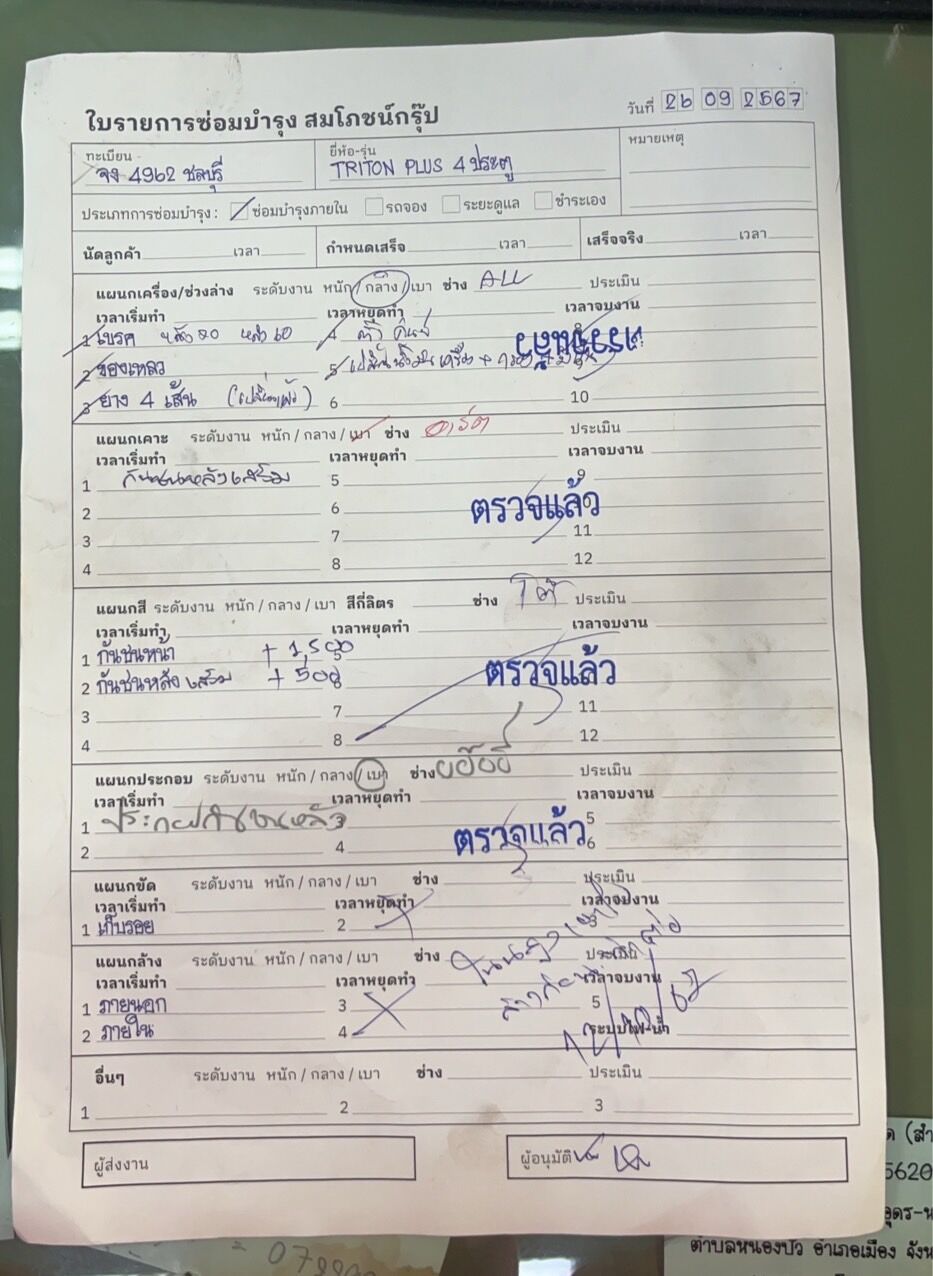 ใบรายการซ่อมบำรุง สมโภชน์กรุ๊ป
วันที่ 26 09 2567
ทะเบียน
จง 4962 ชลบุรี
ยี่ห้อ-รุ่น
TRITON PLUS 4 ประตู
หมายเหตุ
ประเภทการซ่อมบำรุง : ซ่อมบำรุงภายใน รถจอง ระยะดูแล ชำระเอง
นัดลูกค้า เวลา กำหนดเสร็จ เวลา เสร็จจริง เวลา
แผนกเครื่อง/ช่วงล่าง ระดับงาน หนัก / กลาง / เบา ช่าง ALL ประเมิน
เวลาเริ่มทำ เวลาหยุดทำ เวลาจบงาน
1 เบรค หลัง 4
2 ของเหลว 5 เปลี่ยนน้ำมันเครื่อง +
ตรวจแล้ว
3 ยาง 4 เส้น (เปลี่ยนแล้ว) 6 10
แผนกเคาะ ระดับงาน หนัก / กลาง / เบา ช่าง อาร์ต ประเมิน
เวลาเริ่มทำ เวลาหยุดทำ เวลาจบงาน
1 กันชนหลังเสริม 5 9
2 6 ตรวจแล้ว
3 7 11
4 8 12
แผนกสี ระดับงาน หนัก / กลาง / เบา สีกี่ลิตร ช่าง ประเมิน
เวลาเริ่มทำ เวลาหยุดทำ เวลาจบงาน
1 กันชนหน้า + 1,500
2 กันชนหลังเสริม + 500 ตรวจแล้ว
3 7 11
4 8 12
แผนกประกอบ ระดับงาน หนัก / กลาง / เบา ช่าง ประเมิน
เวลาเริ่มทำ เวลาหยุดทำ เวลาจบงาน
1 ประกอบกันชนหลัง 3 5
2 4 ตรวจแล้ว 6
แผนกขัด ระดับงาน หนัก / กลาง / เบา ช่าง ประเมิน
เวลาเริ่มทำ เวลาหยุดทำ เวลาจบงาน
1 เก็บรอย 2
แผนกล้าง ระดับงาน หนัก / กลาง / เบา ช่าง ประเมิน
เวลาเริ่มทำ เวลาหยุดทำ เวลาจบงาน
1 ภายนอก 3 5
2 ภายใน 4 ระบบไฟ-น้ำ
อื่นๆ ระดับงาน หนัก / กลาง / เบา ช่าง ประเมิน
1 2 3
ผู้ส่งงาน ผู้อนุมัติ
5620
ตำบลหนองบัว อำเภอเมือง จังห